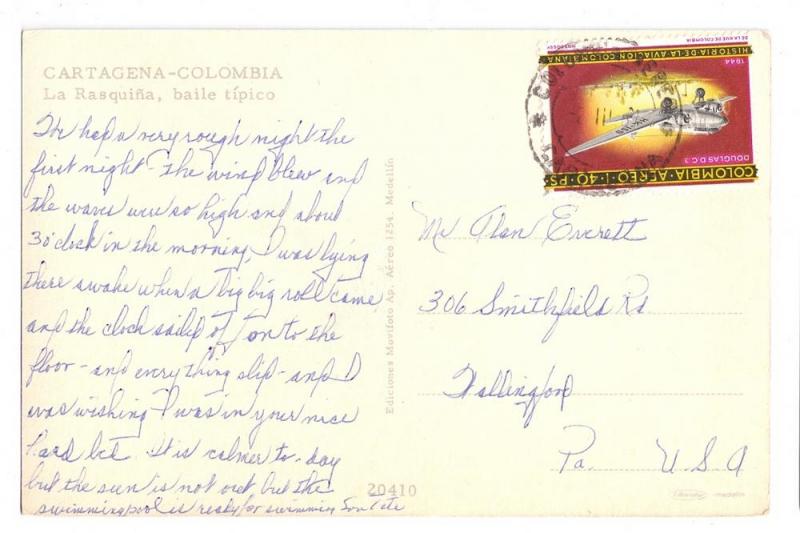 CARTAGENA-COLOMBIA
La Rasquiña, baile típico
had a very rough night the
first night - the wind blew and
the waves were so high and about
3 o'clock in the morning, I was lying
there awake when a big big roll came
and the clock sailed off on to the
floor - and everything slip - and I
was wishing I was in your nice
hard bet. It is calmer to-day
but the sun is not out but the
swimming pool is ready for swimming
20410
Ediciones Movifoto Ap. Aéreo 1254. Medellín
HISTORIA·DE·LA·AVIACION·COLOMBIANA
1944
DOUGLAS D.C.3
COLOMBIA·AEREO·1·40·PS
Mr Alan Everett
306 Smithfield Rd
Wallingford
Pa. U.S.A
medellín